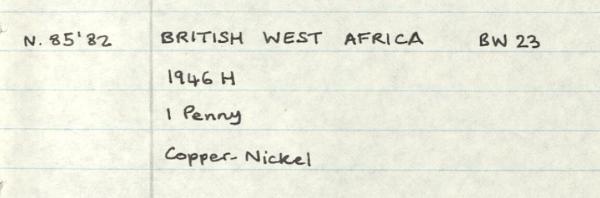 N. 85'82 BRITISH WEST AFRICA BW 23
1946 H
1 Penny
Copper-Nickel